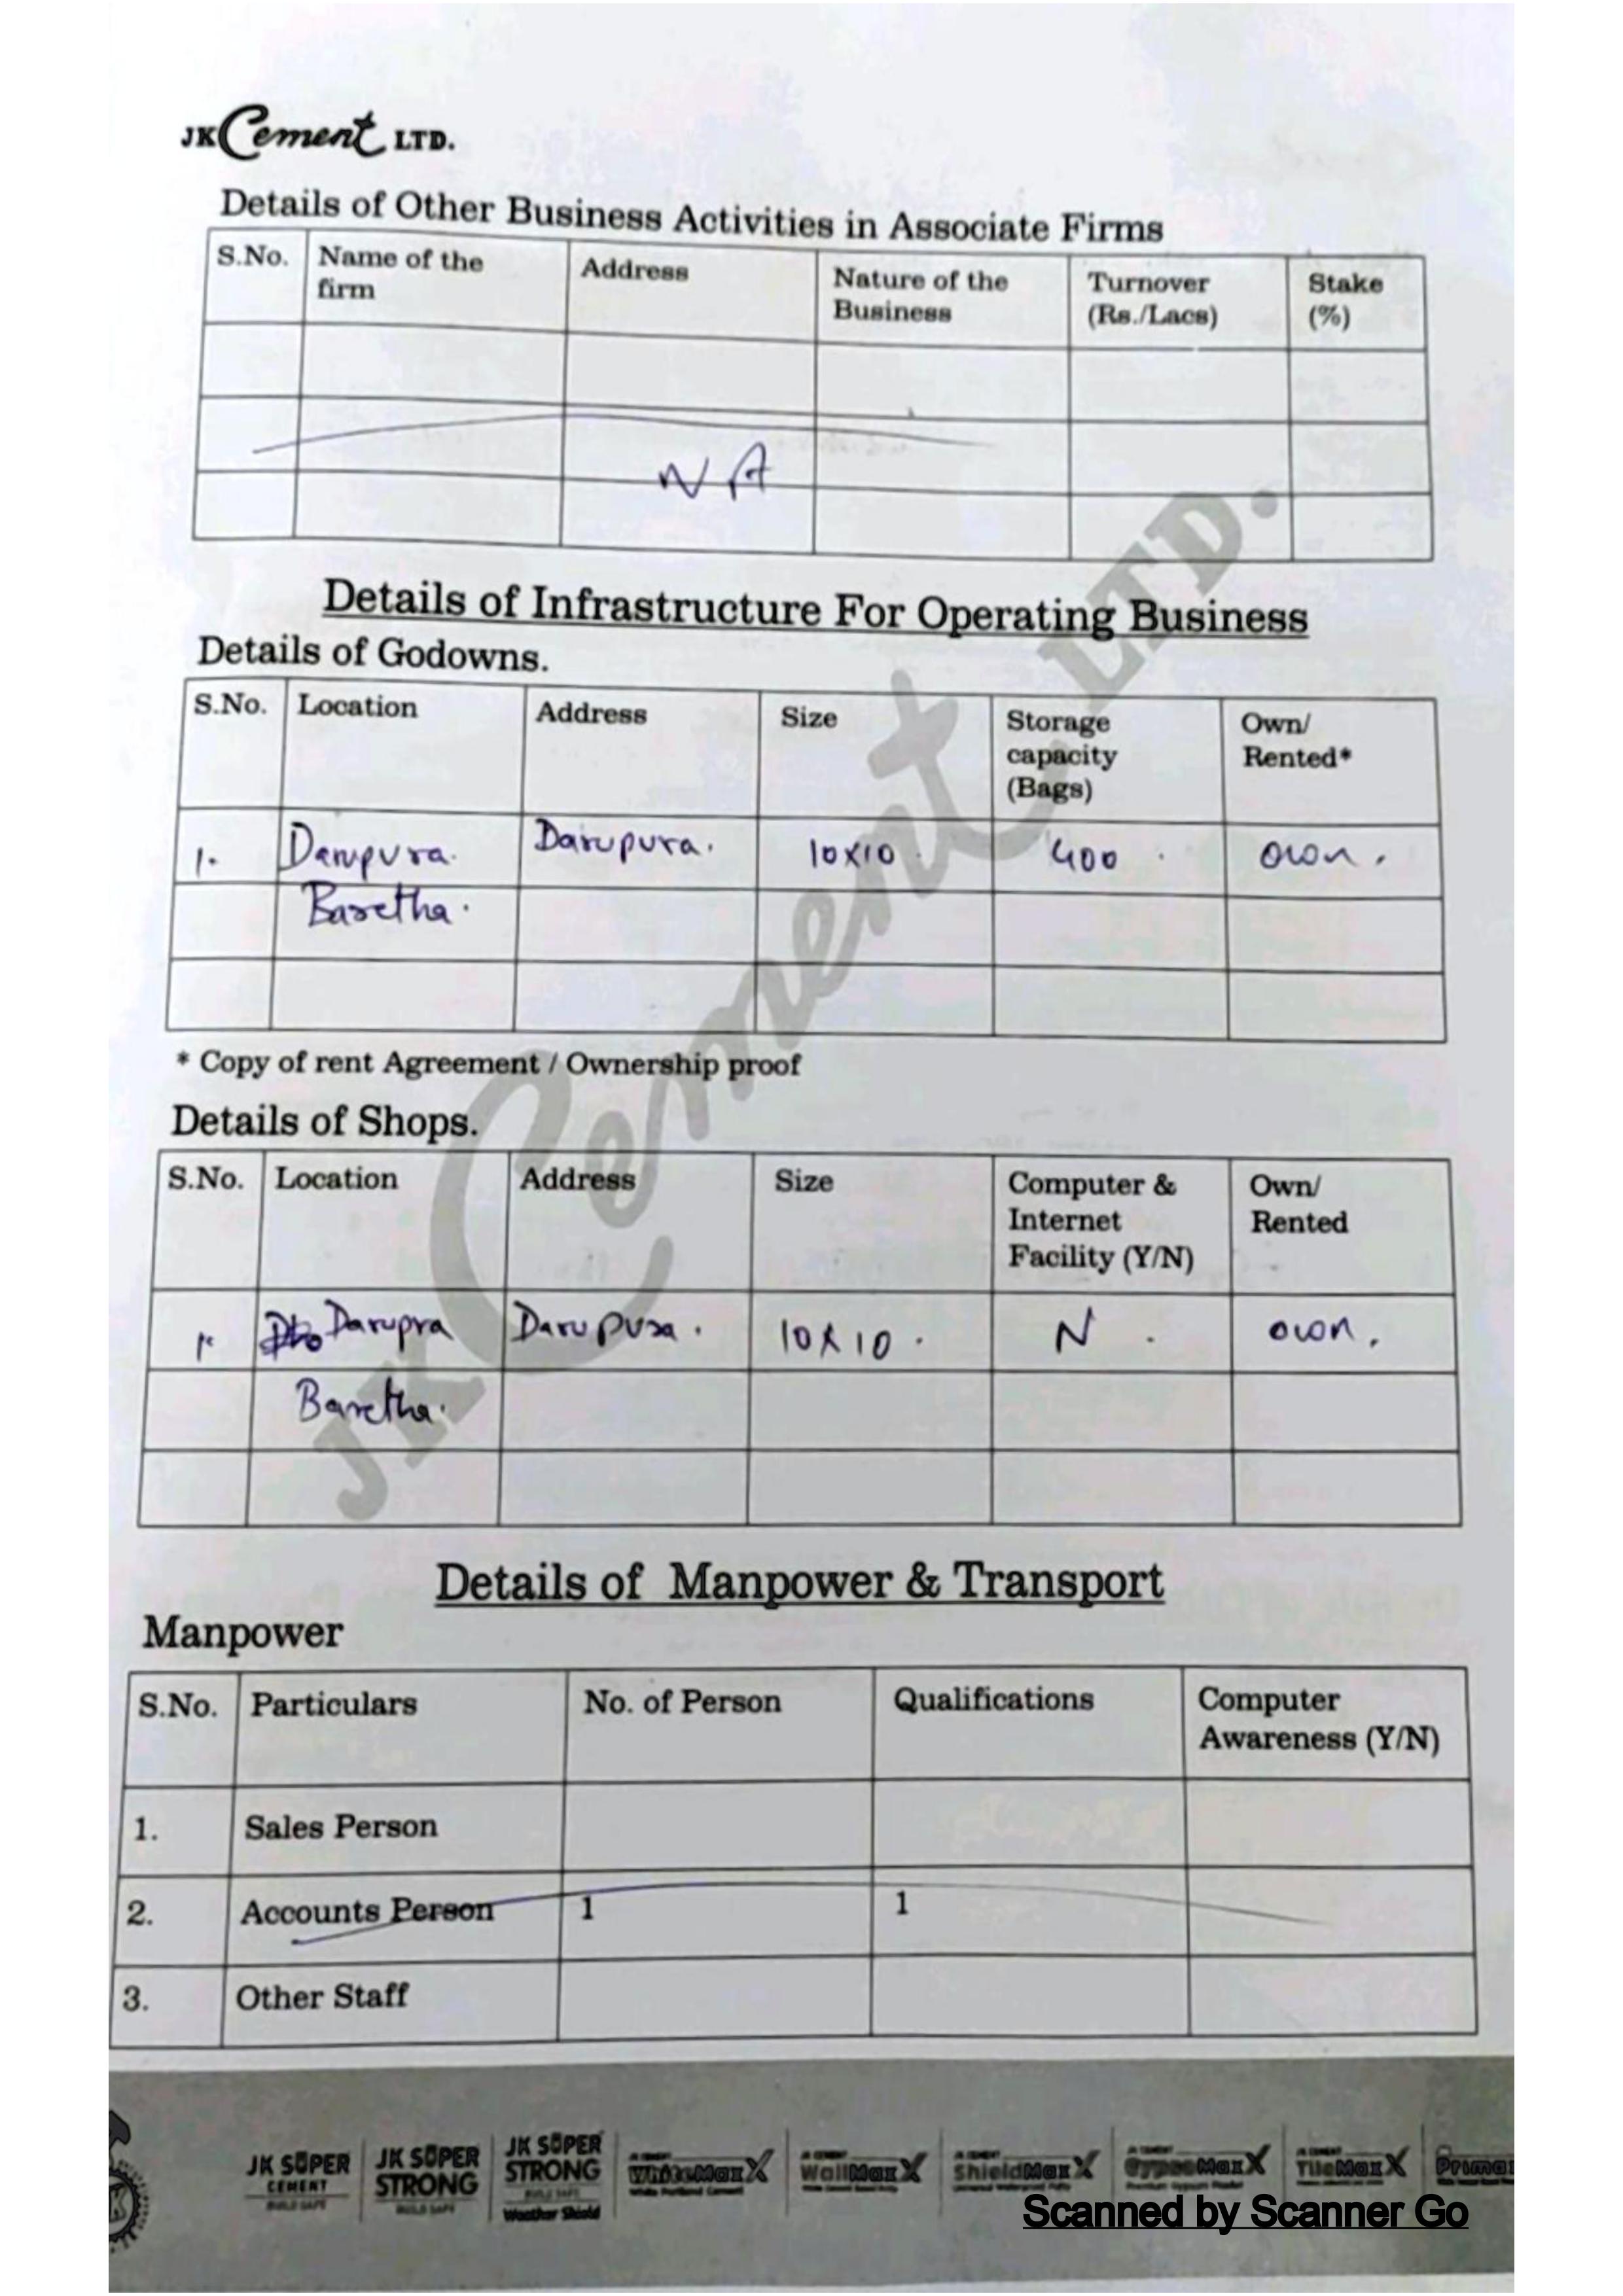 JK Cement LTD.
Details of Other Business Activities in Associate Firms
S.No. Name of the firm Address Nature of the Business Turnover (Rs./Lacs) Stake (%)
NA
Details of Infrastructure For Operating Business
Details of Godowns.
S.No. Location Address Size Storage capacity (Bags) Own/ Rented*
1. Darupura. Darupura. 10x10. 400. own.
Baretha.
* Copy of rent Agreement / Ownership proof
Details of Shops.
S.No. Location Address Size Computer & Internet Facility (Y/N) Own/ Rented
1. Darupra Darupura. 10x10. N. own.
Baretha.
Details of Manpower & Transport
Manpower
S.No. Particulars No. of Person Qualifications Computer Awareness (Y/N)
1. Sales Person
2. Accounts Person 1 1
3. Other Staff
JK Cement LTD.
JK SUPER CEMENT BUILD SAFE JK SUPER STRONG BUILD SAFE JK SUPER STRONG BUILD SAFE Weather Shield JK CEMENT WhiteMaxX White Portland Cement JK CEMENT WallMaxX JK CEMENT ShieldMaxX JK CEMENT GypsoMaxX JK CEMENT TileMaxX
Scanned by Scanner Go